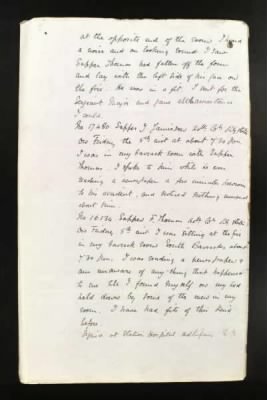 at the opposite end of the room I heard
a noise and on looking round I saw
Sapper Thomas had fallen off the form
and lay with the left side of his face on
the fire. He was in a fit. I sent for the
Sergeant Major and gave all the assistance
I could.
No 17480 Sapper J. Jamieson 20th Co
On Friday the 5th inst at about 7.30 pm
I was in my barrack room with Sapper
Thomas. I spoke to him while he was
reading a newspaper a few minutes previous
to his accident, and noticed nothing unusual
about him.
No 16134 Sapper F. Thomas 20th Co
On Friday 5th inst I was sitting at the fire
in my barrack room South Barracks about
7.30 pm. I was reading a newspaper &
am unaware of anything that happened
to me till I found myself on my bed
held down by some of the men in my
room. I have had fits of this kind
before.
at Station Hospital